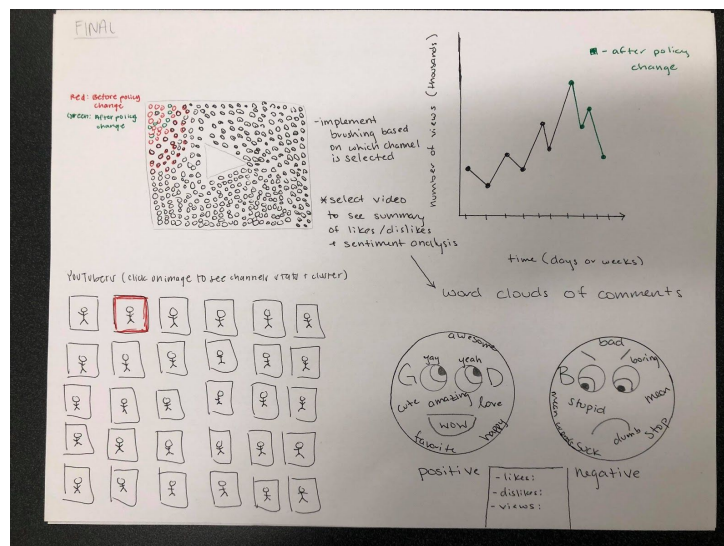 FINAL
Red: Before policy
change
Green: After policy
change
-implement
brushing based
on which channel
is selected
*select video
to see summary
of likes/dislikes
+ sentiment analysis
number of views (thousands)
- after policy
change
time (days or weeks)
YouTubers (click on image to see channels stats + cluster)
word clouds of comments
awesome
yay yeah
G D
cute amazing love
wow
favorite
happy
positive
bad
boring
B
mean
stupid
mean words
sick
dumb
stop
negative
- likes:
- dislikes:
- views: